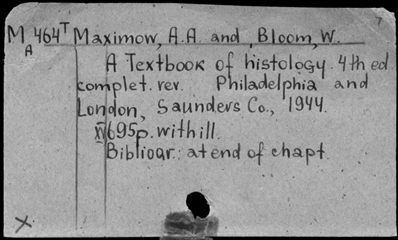 M 464T Maximow, A.A. and Bloom, W.
A
A Textbook of histology. 4th ed
complet. rev. Philadelphia and
London, Saunders Co., 1944.
XV 695p. with ill.
Bibliogr.: at end of chapt.
X